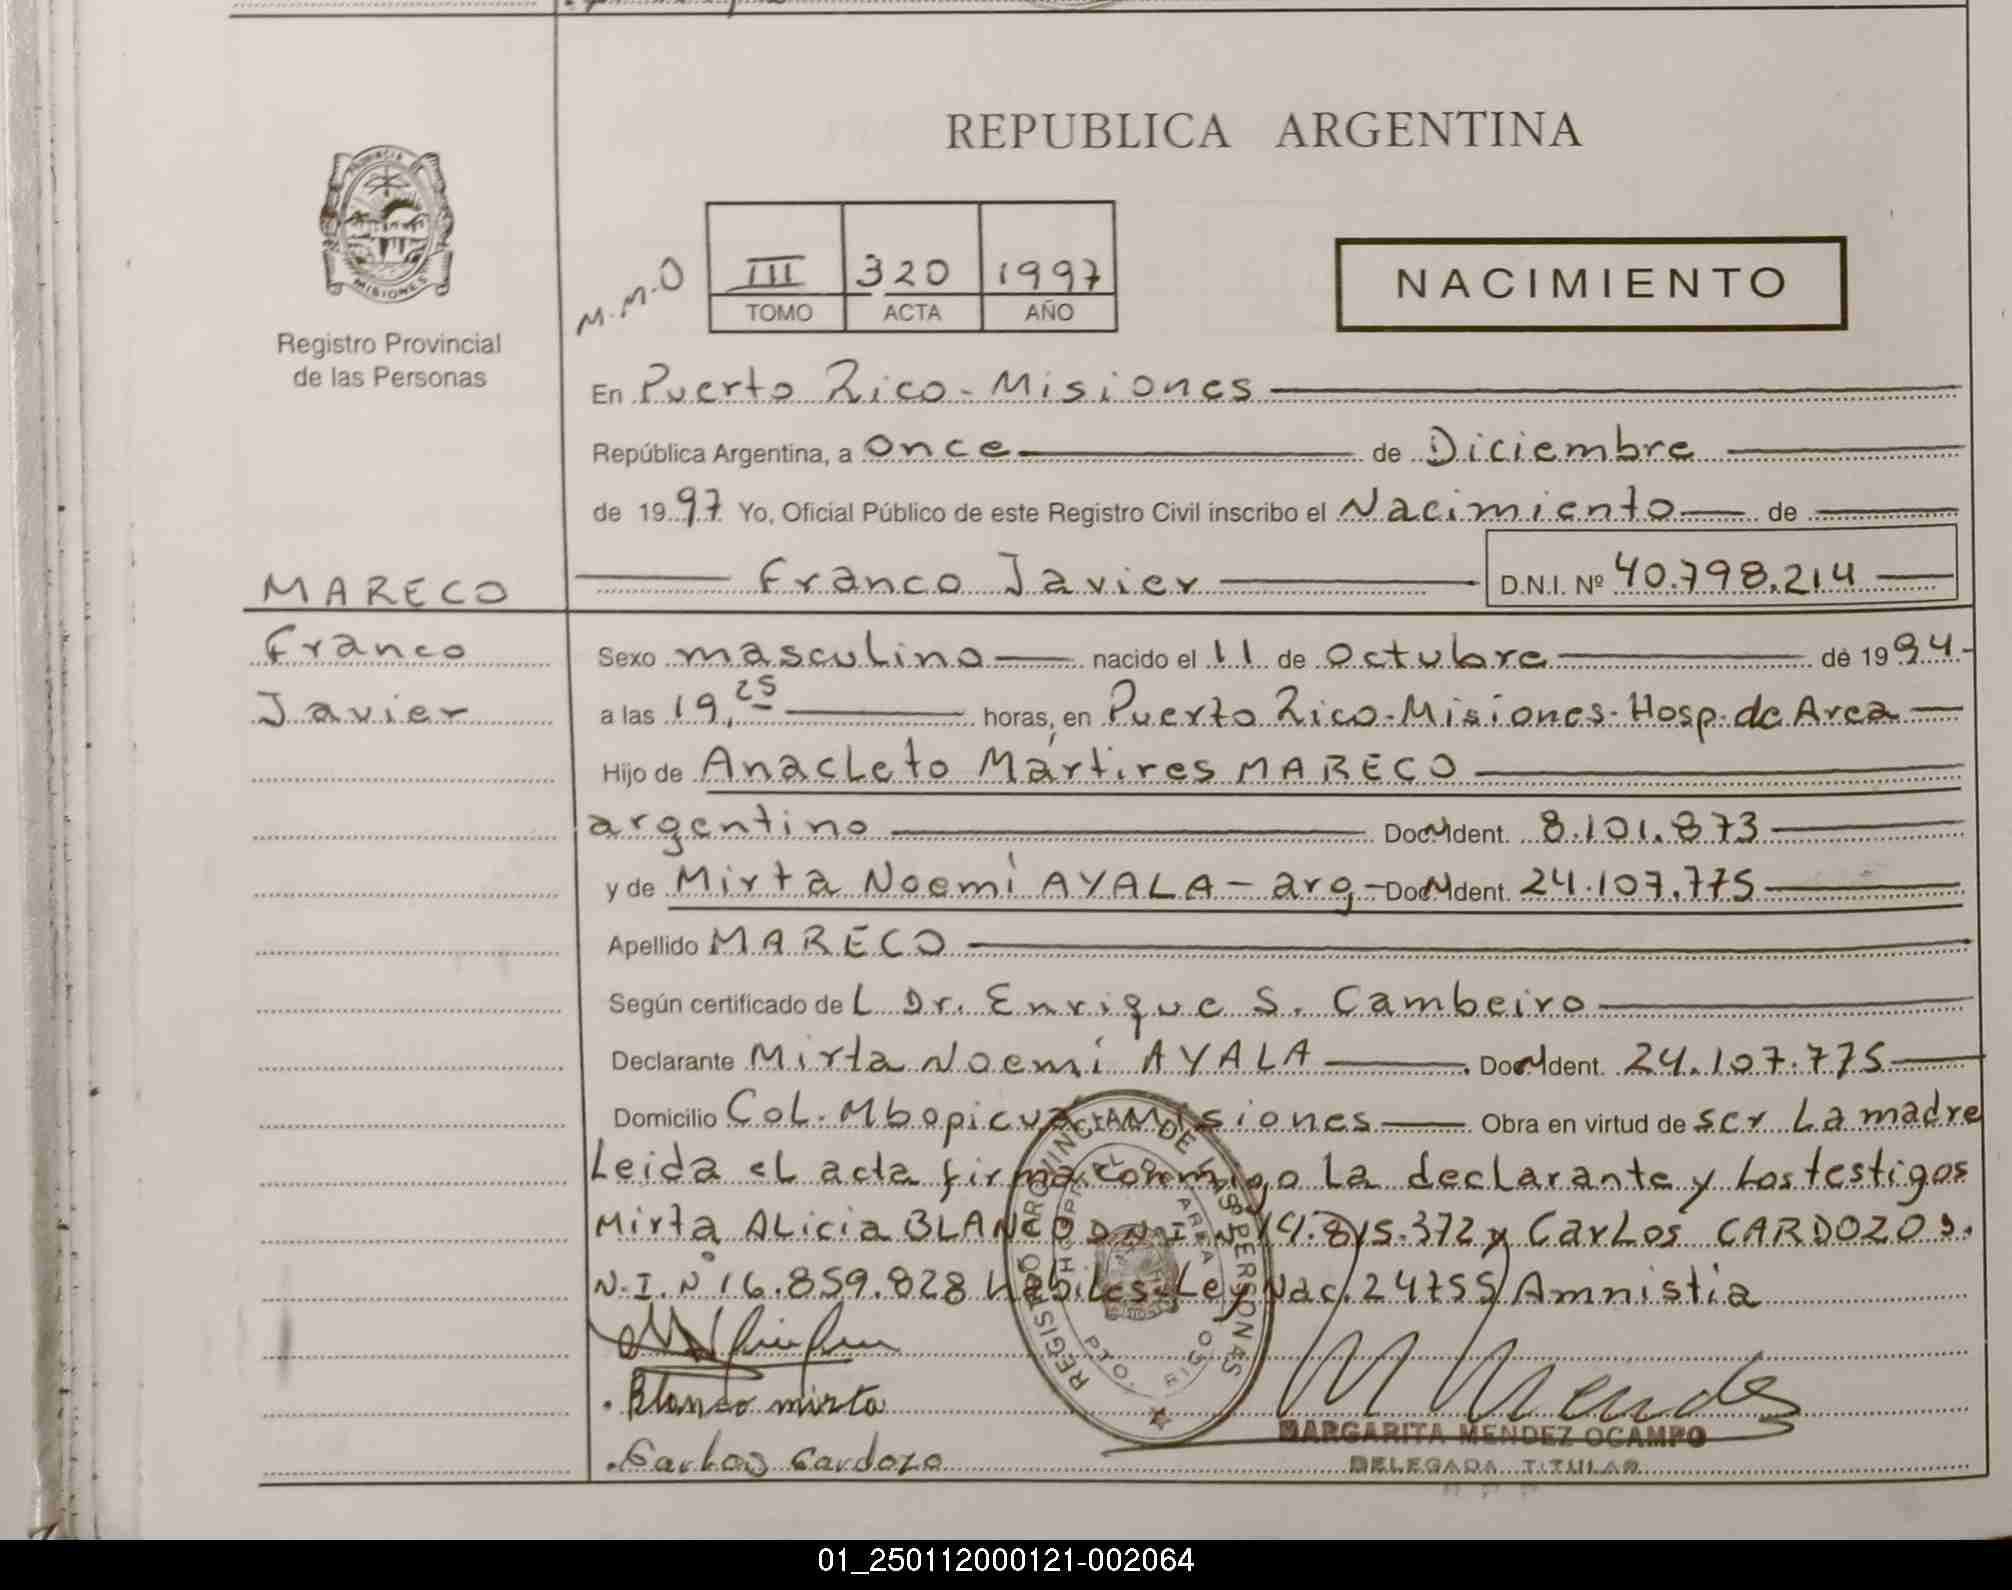 REPUBLICA ARGENTINA
PROVINCIA
MISIONES
Registro Provincial
de las Personas
M.M.O
III 320 1997
TOMO ACTA AÑO
NACIMIENTO
En Puerto Rico - Misiones
República Argentina, a once de Diciembre
de 1997 Yo, Oficial Público de este Registro Civil inscribo el Nacimiento de
MARECO
Franco Javier D.N.I. Nº 40.798.214
Franco
Javier
Sexo masculino nacido el 11 de Octubre de 1994-
a las 19,25 horas, en Puerto Rico-Misiones-Hosp. de Area
Hijo de Anacleto Mártires MARECO
argentino Doc. Ident. 8.101.873
y de Mirta Noemí AYALA - arg - Doc. Ident. 24.107.775
Apellido MARECO
Según certificado de L Dr. Enrique S. Cambeiro
Declarante Mirta Noemí AYALA Doc. Ident. 24.107.775
Domicilio Col. Mbopicuá - Misiones Obra en virtud de ser La madre
Leida el acta firma conmigo La declarante y Los testigos
Mirta Alicia BLANCO D.N.I. Nº 14.815.372 y Carlos CARDOZO D.
N.I. Nº 16.859.828 Hábiles-Ley Nac. 24755 Amnistia
REGISTRO PROVINCIAL DE LAS PERSONAS
PTO. RICO
. Blanco mirta
. Carlos Cardozo
M Mendez
MARGARITA MENDEZ OCAMPO
DELEGADA TITULAR
01_250112000121-002064